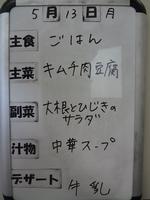 5月13日月
主食 ごはん
主菜 キムチ肉豆腐
副菜 大根とひじきの
サラダ
汁物 中華スープ
デザート 牛乳